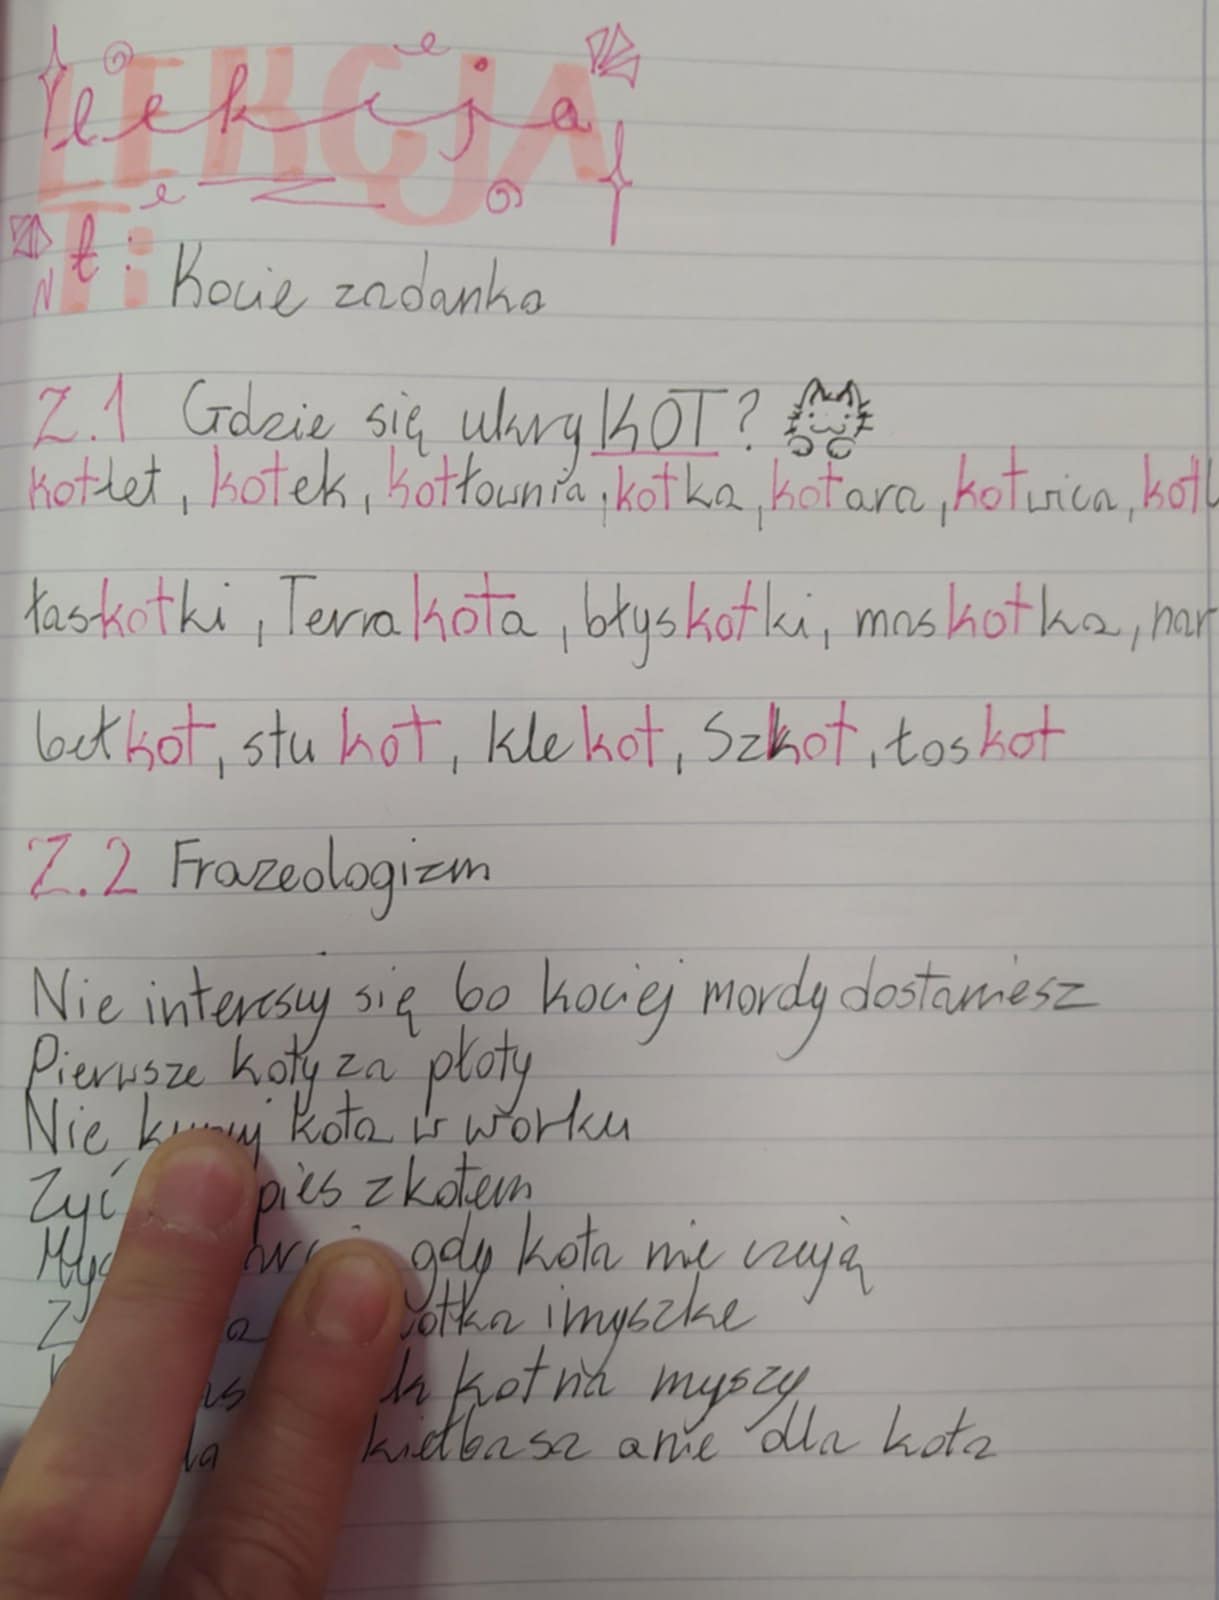 LEKCJA
lekcja
T: t: Kocie zadanka
Z.1 Gdzie się ukryKOT?
kotlet, kotek, kotłownia, kotka, kotara, kotwica,
łaskotki, Terrakota, błyskotki, maskotka,
bełkot, stukot, klekot, Szkot, łoskot
Z.2 Frazeologizm
Nie interesuj się bo kociej mordy dostaniesz
Pierwsze koty za płoty
Nie kota w worku
Żyć pies z kotem
gdy kota nie czują
i myszkę
kot na myszy
kiełbasa a nie dla kota